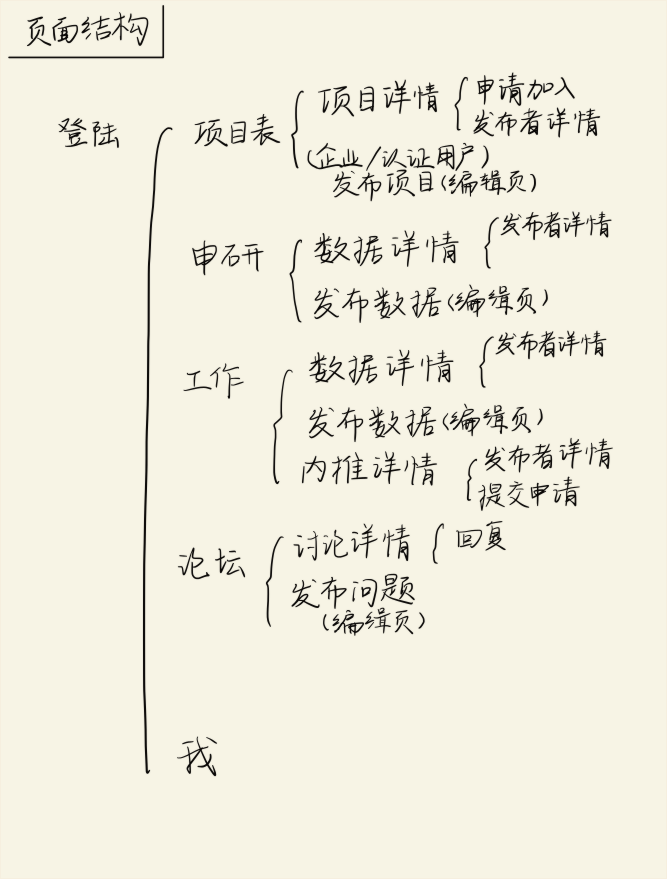 页面结构
登陆
项目表
项目详情
申请加入
发布者详情
(企业/认证用户)
发布项目(编辑页)
申研
数据详情
发布者详情
发布数据(编缉页)
工作
数据详情
发布者详情
发布数据(编缉页)
内推详情
发布者详情
提交申请
论坛
讨论详情
回复
发布问题
(编缉页)
我